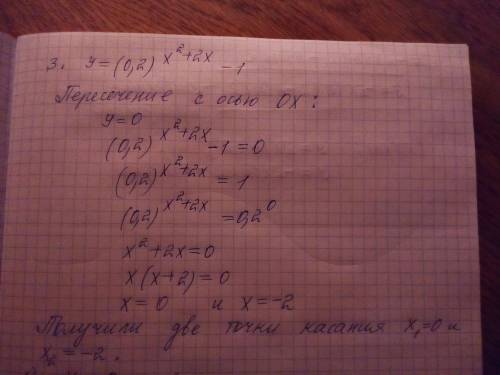 3. y = (0,2)^{x²+2x} - 1
Пересечение с осью OX:
y=0
(0,2)^{x²+2x} - 1 = 0
(0,2)^{x²+2x} = 1
(0,2)^{x²+2x} = 0,2⁰
x²+2x=0
x(x+2)=0
x=0 и x=-2
Получили две точки касания x₁=0 и
x₂=-2.